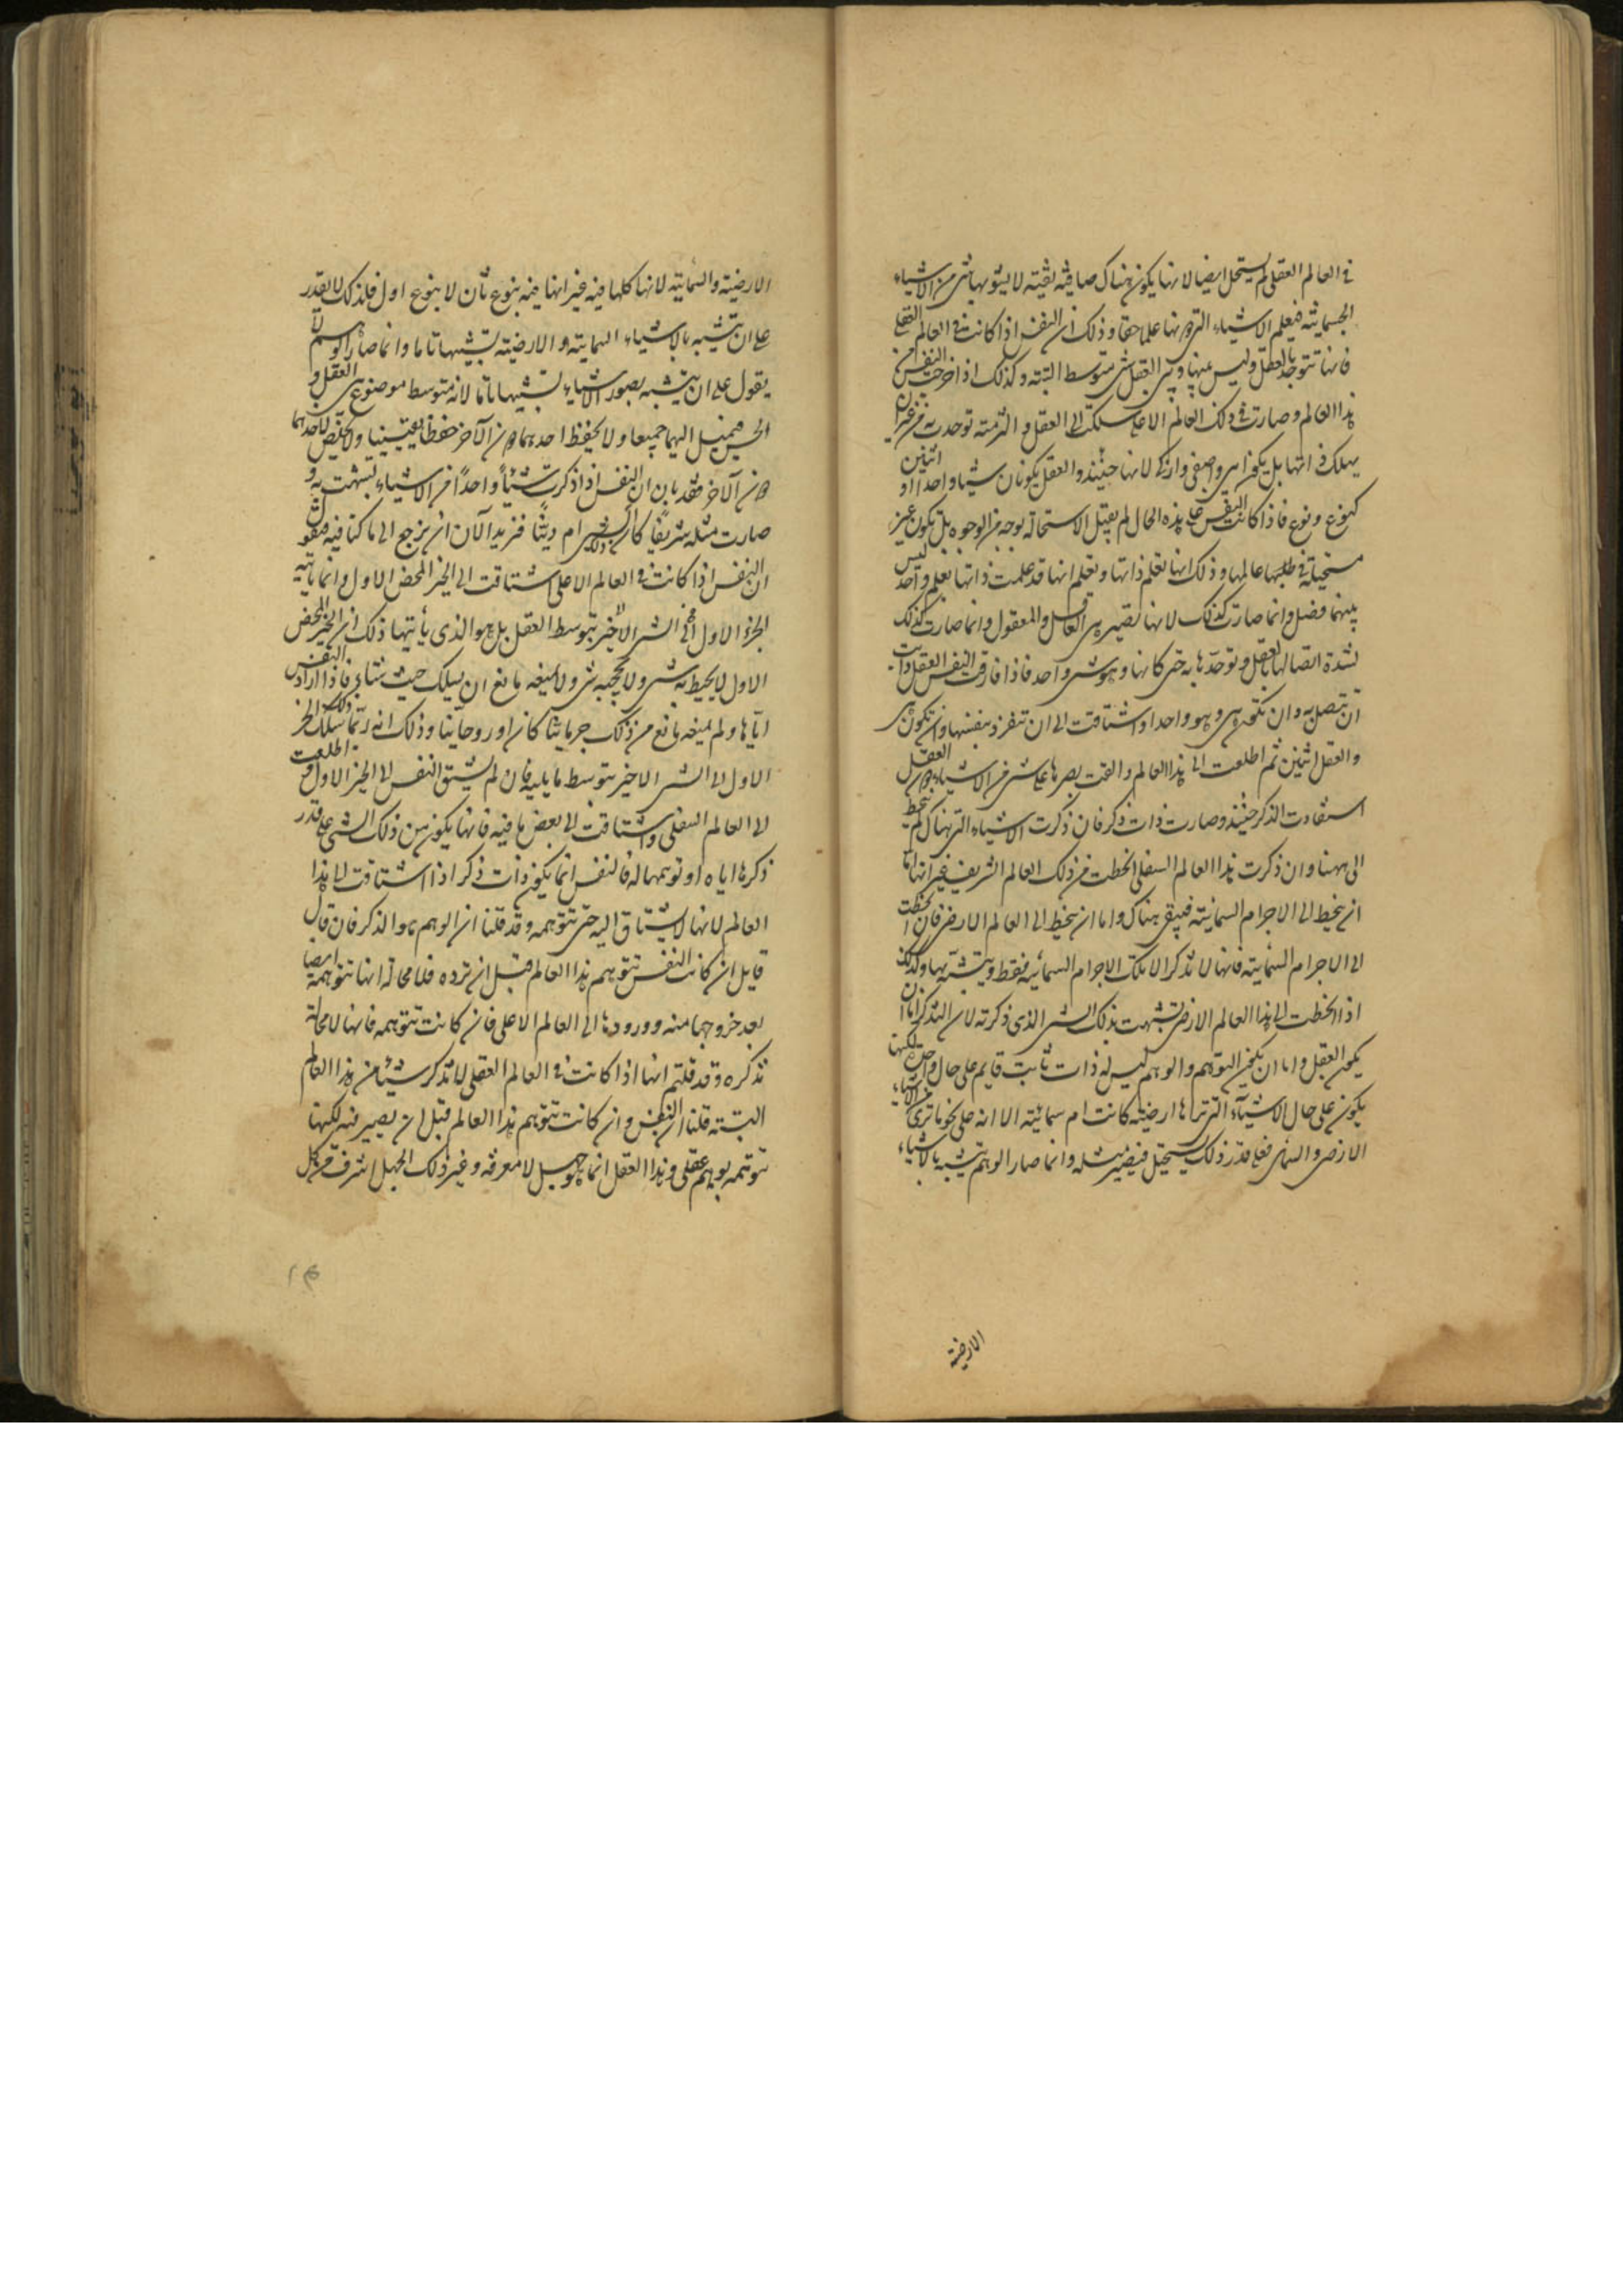 في العالم العقلي لم يستحل ايضا لانها يكون هناك صافية نقية لا يشوبها شيء من الاشياء
الجسمانية فيعلم الاشياء التي دونها علما حقا وذلك ان النفس اذا كانت في العالم العقلي
فانها تتوحد بالعقل وليس بينها وبين العقل شيء متوسط البتة وكذلك اذا خرجت النفس من
هذا العالم وصارت في ذلك العالم الاعلى سلكت الى العقل والتزمته توحدت به من غير ان
يهلك ذاتها بل يكون ابين واصفى وازكى لانها حينئذ والعقل يكونان شيئا واحدا واثنين
كنوع ونوع فاذا كانت النفس على هذه الحال لم يقبل الاستحالة بوجه من الوجوه بل تكون غير
مستحيلة في طلبها عالمها وذلك انها تعلم ذاتها وتعلم انها قد علمت ذاتها بعلم واحد ليس
بينهما فضل وانما صارت كذلك لانها تصير هي العاقل والمعقول وانما صارت كذلك
لشدة اتصالها بالعقل وتوحدها به حتى كانها وهو شيء واحد فاذا فارقت النفس العقل وابت
ان تتصل به وان تكون هي وهو واحدا واشتاقت الى ان تنفرد بنفسها وان تكون هي
والعقل اثنين ثم اطلعت الى هذا العالم والقت بصرها على شيء من الاشياء دون العقل
استفادت الذكر حينئذ وصارت ذات ذكر فان ذكرت الاشياء التي هناك لم تنحط
الى ههنا وان ذكرت هذا العالم السفلي انحطت من ذلك العالم الشريف غير انها اما
ان ينحط الى الاجرام السمائية فيبقى هناك واما ان ينحط الى العالم الارضي فان انحطت
الى الاجرام السمائية فانها لا تذكر الا تلك الاجرام السمائية فقط ويتشبه بها وكذلك
اذا انحطت الى هذا العالم الارضي تشبهت بذلك الشيء الذي ذكرته لان التذكر اما ان
يكون العقل واما ان يكون التوهم والوهم ليس له ذات ثابت قايم على حال واحد لكنها
يكون على حال الاشياء التي تراها ارضية كانت ام سمائية الا انه على نحو ما ترى من الاشياء
الارضي والسمائي فعلى قدر ذلك يستحيل فيصير مثله وانما صار الوهم يتشبه بالاشياء
الارضية
الارضية والسمائية لانها كلها فيه غير انها فيه بنوع ثان لا بنوع اول فلذلك لا يقدر
على ان يتشبه بالاشياء السمائية والارضية تشبيها تاما وانما صار الوهم لا
يقول على ان يتشبه بصور الاشياء تشبيها تاما لانه متوسط موضوع بين العقل و
الحس فيميل اليهما جميعا ولا يحفظ احدهما دون الآخر حفظا يقينيا ولا يخلص لاحدهما
دون الآخر فقد بان ان النفس اذا ذكرت شيئا واحدا من الاشياء تشبهت به و
صارت مثله شريفا كان ذلك الشيء ام دنيا فنريد الآن ان نرجع الى ما كنا فيه فنقول
ان النفس اذا كانت في العالم الاعلى اشتاقت الى الخير المحض الاول وانما ياتيه
الخير الاول الشيء الاخير بتوسط العقل بل هو الذي يأتيها ذلك ان الخير المحض
الاول لا يحيط به شيء ولا يحجبه شيء ولا يمنعه مانع ان يسلك حيث شاء فاذا اراد النفس
اتاها ولم يمنعه مانع من ذلك جرمانيا كان او روحانيا وذلك انه ربما سلك ذلك الخير
الاول الى الشيء الاخير بتوسط ما يليه فان لم يشتق النفس الى الخير الاول واطلعت
الى العالم السفلي واشتاقت الى بعض ما فيه فانها يكون من ذلك الشيء على قدر
ذكرها اياه او توهمها له فالنفس انما يكون ذات ذكر اذا اشتاقت الى هذا
العالم لانها لا يشتاق اليه حتى تتوهمه وقد قلنا ان الوهم هو الذكر فان قال
قايل ان كانت النفس تتوهم هذا العالم قبل ان ترده فلا محالة انها تتوهمه ايضا
بعد خروجها منه وورودها الى العالم الاعلى فان كانت تتوهمه فانها لا محالة
تذكره وقد قلتم انها اذا كانت في العالم العقلي لا تذكر شيئا من هذا العالم
البتة قلنا ان النفس وان كانت تتوهم هذا العالم قبل ان يصير فيه لكنها
تتوهمه بوهم عقلي وهذا العقل انما هو جهل لا معرفة وغير ذلك الجهل اشرف من كل